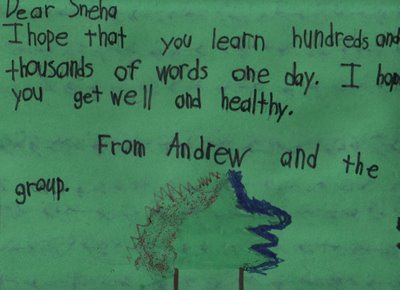 Dear Sneha
I hope that you learn hundreds and
thousands of words one day. I hop
you get well and healthy.
From Andrew and the
group.